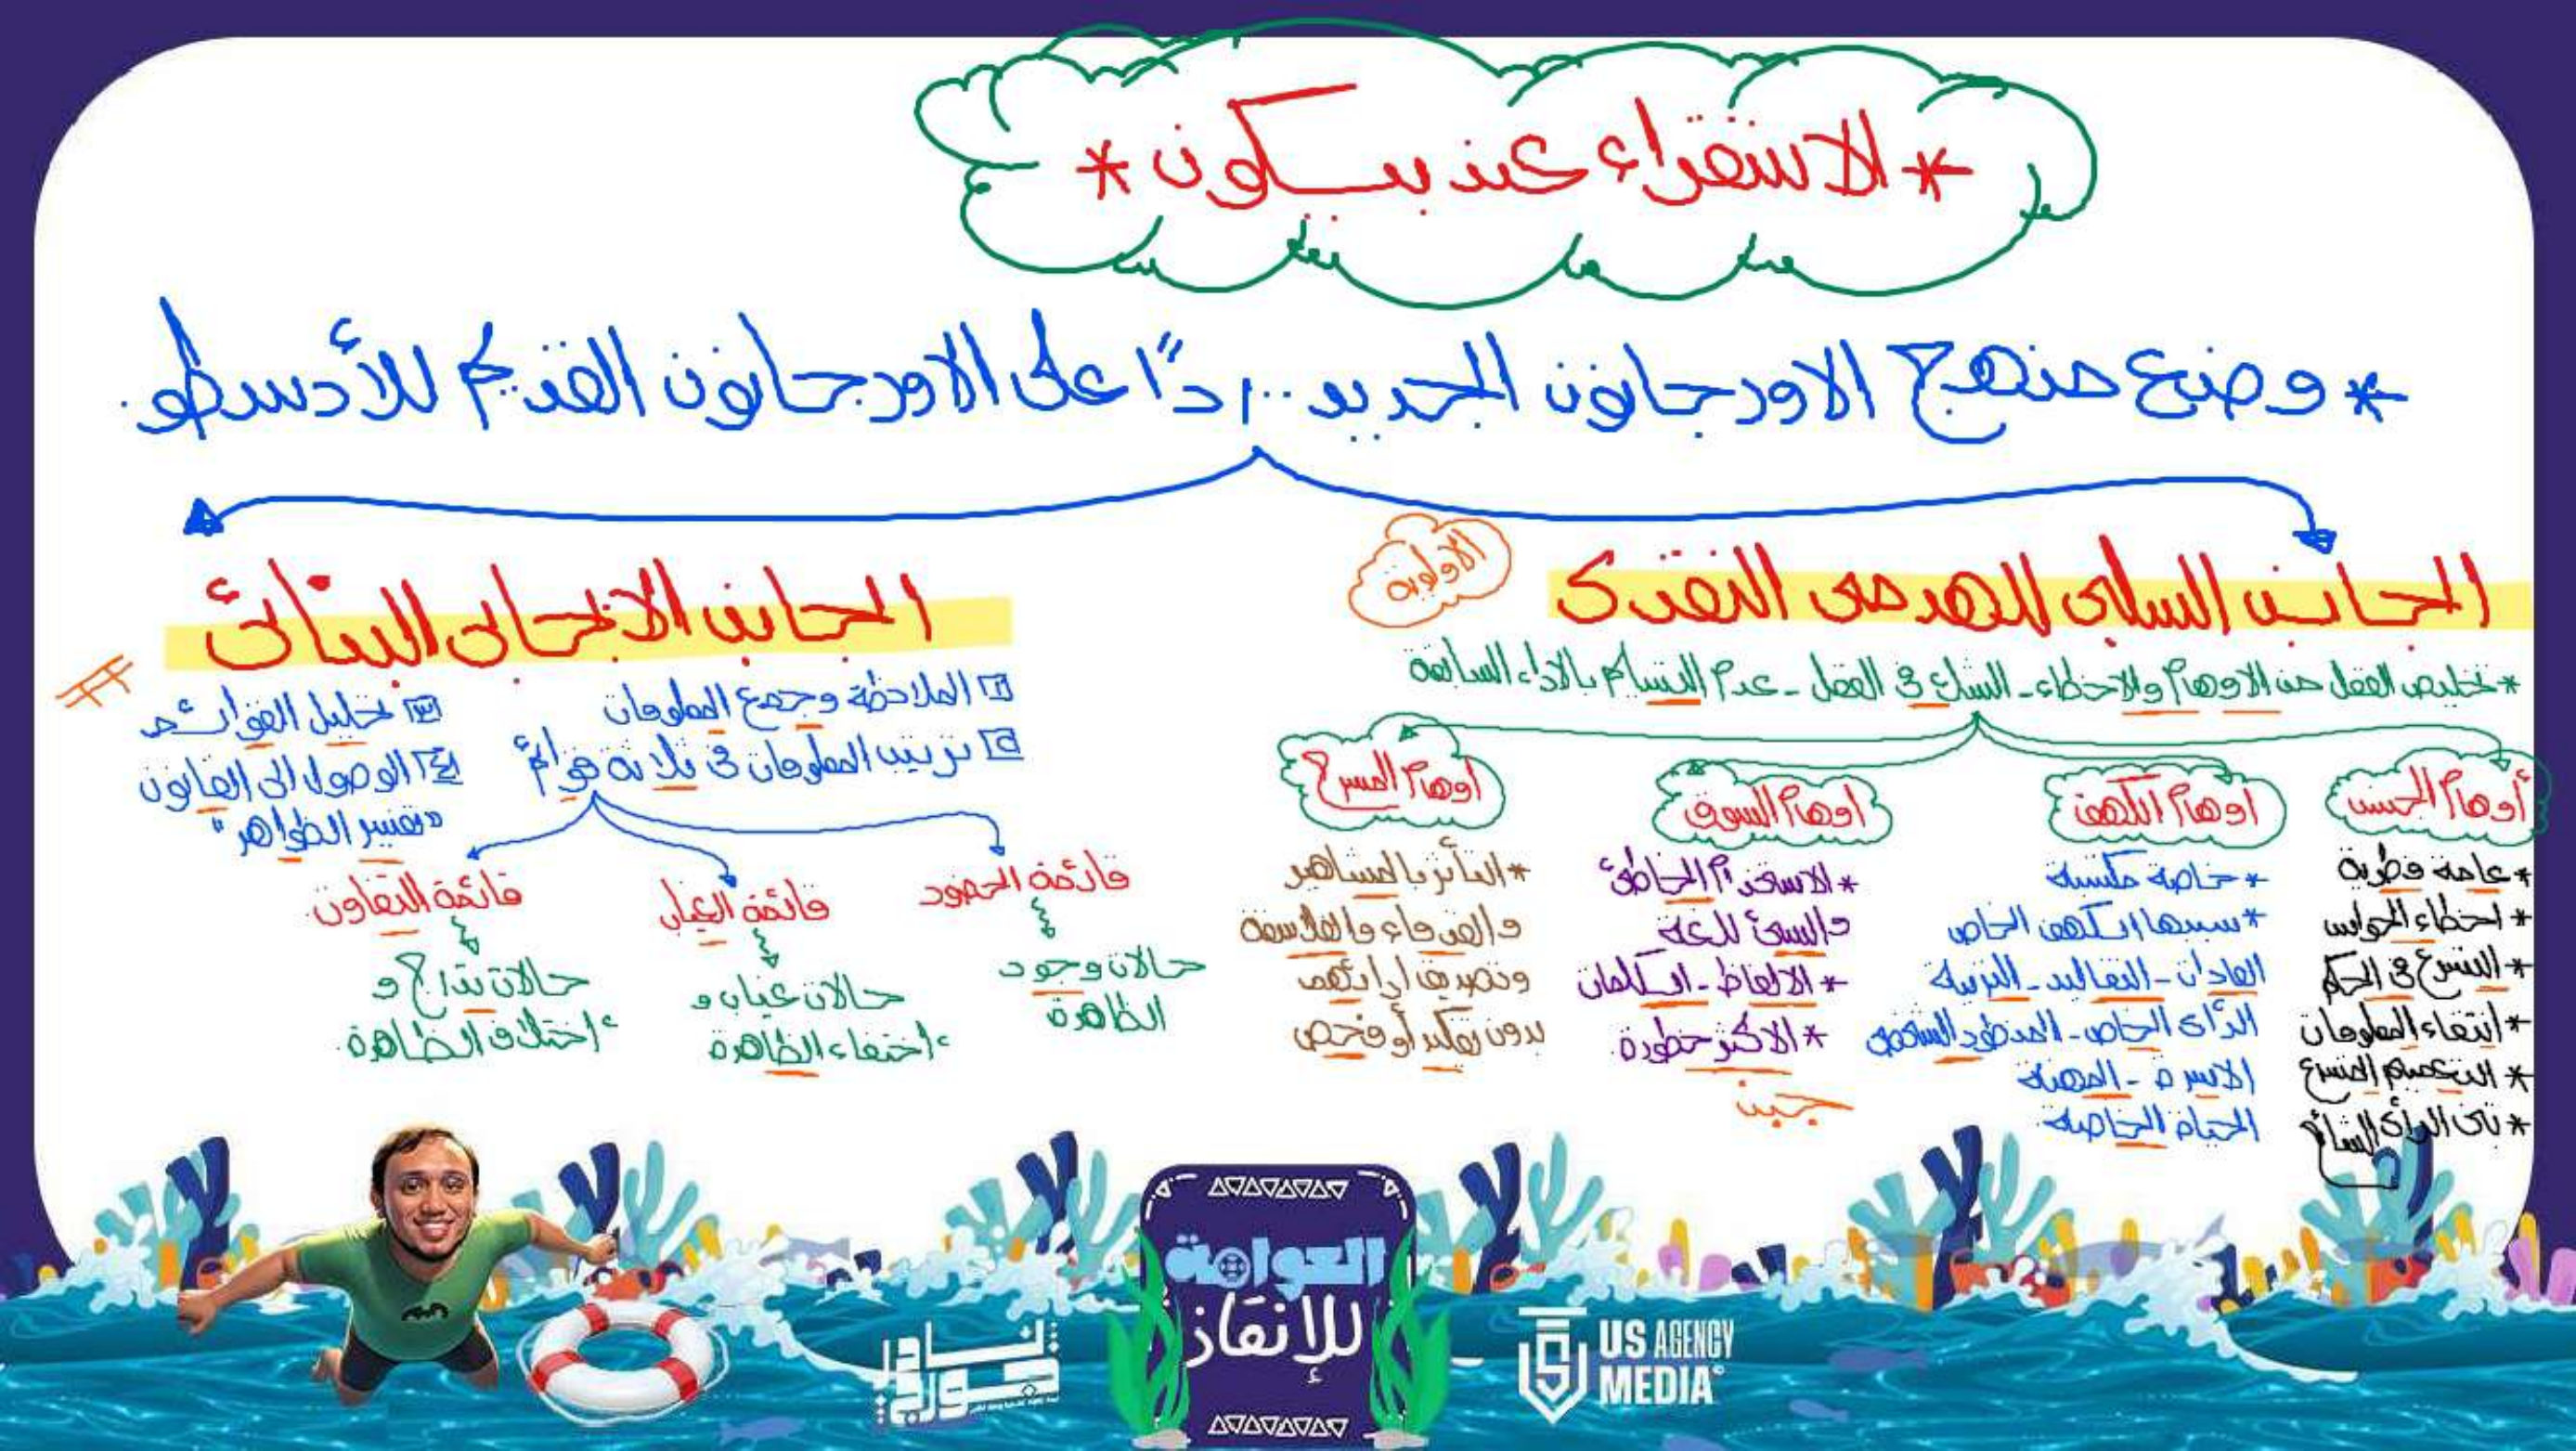 * الاستقراء عند بيكون *
* وضع منهج الاورجانون الجديد .. ردًا على الاورجانون القديم للأرسطو.
الجانب السلبى الهدمى النقدى
الاولوية
* تخليص العقل من الاوهام والاخطاء - الشك فى العقل - عدم التسليم بالاراء السابقة
أوهام الجنس
* عامة فطرية
* اخطاء الحواس
* التسرع فى الحكم
* انتقاء المعلومات
* التعميم المتسرع
* تانى الرأى الشائع
اوهام الكهف
* خاصة مكتسبة
* سببها الكهف الخاص
العادات - التقاليد - التربية
الرأى الخاص - المنظور الشخصى
الاسرة - المهنة
الخاصة
اوهام السوق
* الاستخدام الخاطئ
والسئ للغة
* الالفاظ - الكلمات
* الاكثر خطورة.
اوهام المسرح
* التأثر بالمشاهير
والقدماء والفلاسفة
وتصديق ارائهم
بدون تفكير أو فحص
الجانب الايجابى البنائى
١ الملاحظة وجمع المعلومات
٢ ترتيب المعلومات فى ثلاثة قوائم
قائمة الحضور
حالات وجود
الظاهرة
قائمة الغياب
حالات غياب و
اختفاء الظاهرة
قائمة التفاوت
حالات تدرج و
اختلاف الظاهرة.
٣ تحليل القوائم
٤ الوصول الى القانون
"تفسير الظواهر"
العوامة
للإنقاذ
US AGENCY
MEDIA